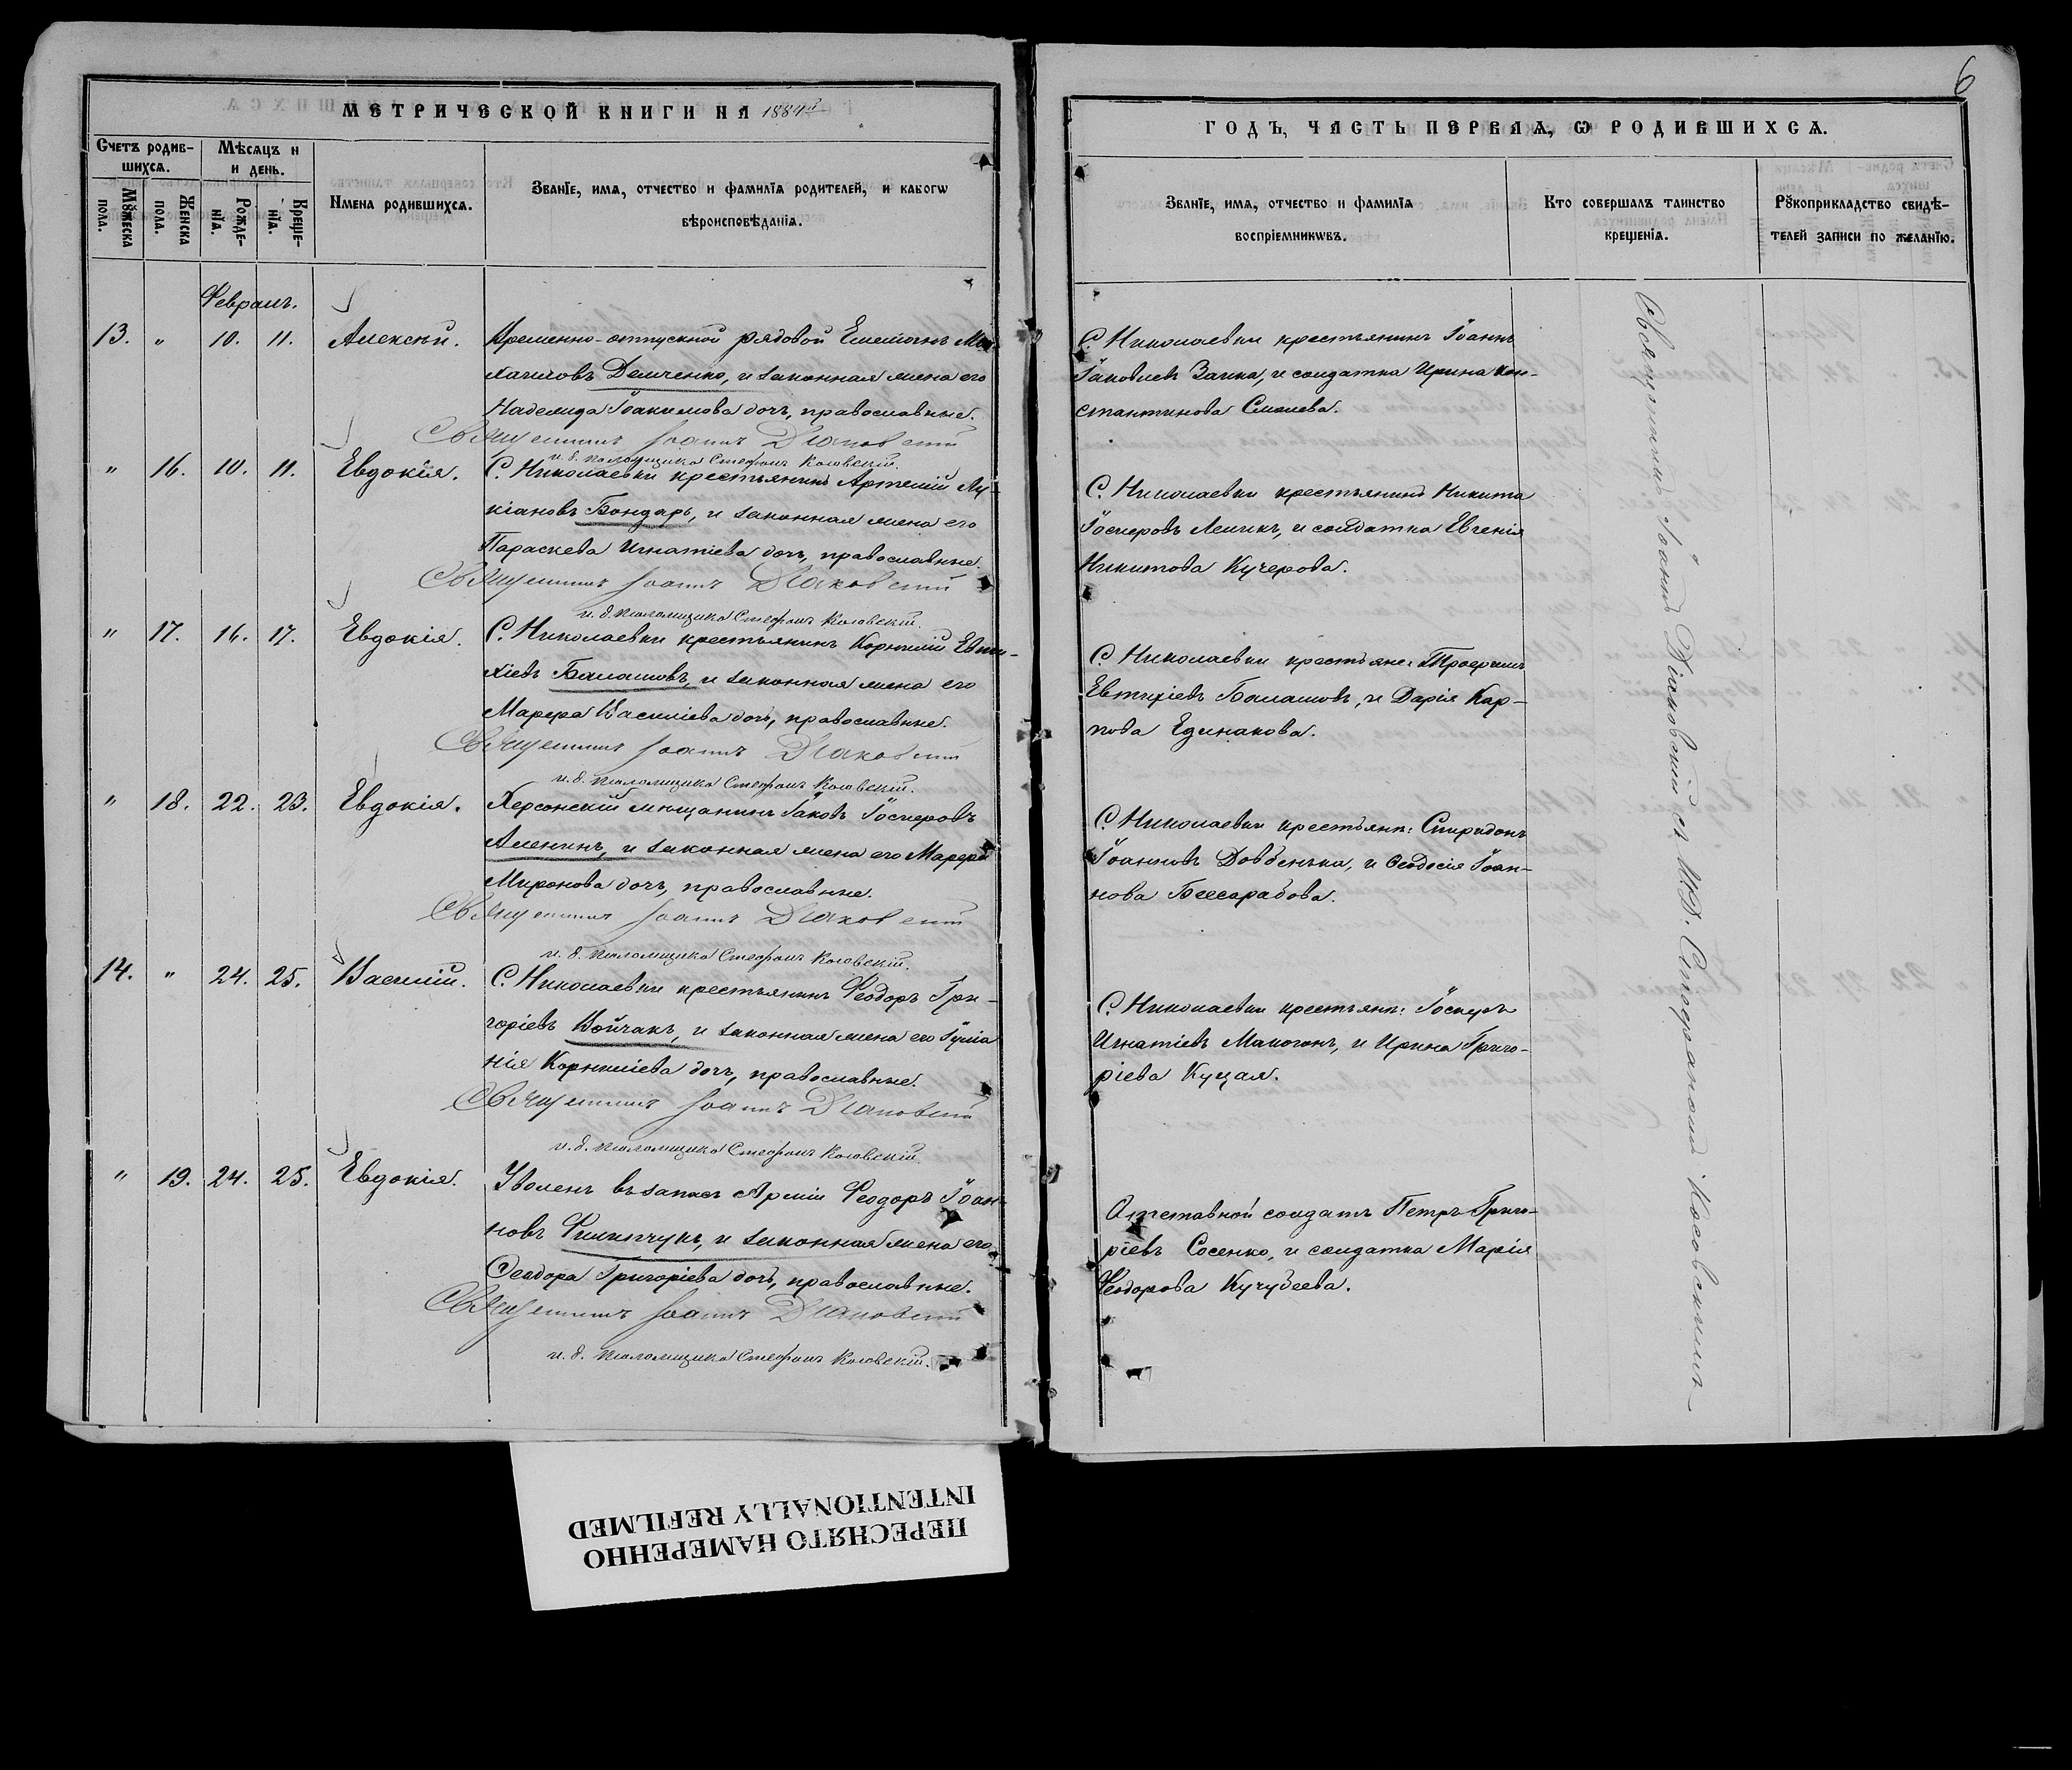 МЕТРИЧЕСКОЙ КНИГИ НА 1884й
Счетъ родив-
шихся.
Мѣсяцъ и
и день.
Мужеска
пола.
Женска
пола.
Рожде-
нія.
Креще-
нія.
Имена родившихся.
Званіе, имя, отчество и фамилія родителей, и какогѡ
вѣроисповѣданія.
Февраль.
13. " 10. 11. Алексѣй. Временно-отпускной рядовой Емеліанъ Ми-
хаиловъ Демченко, и законная жена его
Надежда Іоакимова дочь, православные.
Священникъ Іоаннъ Діаковскій
и. д. псаломщика Стефанъ Косовскій.
" 16. 10. 11. Евдокія. С. Николаевки крестьянинъ Артемій Лу-
кіановъ Бондарь, и законная жена его
Параскева Игнатіева дочь, православные.
Священникъ Іоаннъ Діаковскій
и. д. псаломщика Стефанъ Косовскій.
" 17. 16. 17. Евдокія. С. Николаевки крестьянинъ Корнилій Евти-
хіевъ Балашовъ, и законная жена его
Марфа Василіева дочь, православные.
Священникъ Іоаннъ Діаковскій
и. д. псаломщика Стефанъ Косовскій.
" 18. 22. 23. Евдокія. Херсонскій мѣщанинъ Іаковъ Іосифовъ
Аленинъ, и законная жена его Марфа
Миронова дочь, православные.
Священникъ Іоаннъ Діаковскій
и. д. псаломщика Стефанъ Косовскій.
14. " 24. 25. Василій. С. Николаевки крестьянинъ Феодоръ Гри-
горіевъ Войчакъ, и законная жена его Іуліа
нія Корниліева дочь, православные.
Священникъ Іоаннъ Діаковскій
и. д. псаломщика Стефанъ Косовскій.
" 19. 24. 25. Евдокія. Уволенъ въ запасъ Арміи Феодоръ Іоан-
новъ Филипчукъ, и законная жена его
Феодора Григоріева дочь, православные.
Священникъ Іоаннъ Діаковскій
и. д. псаломщика Стефанъ Косовскій.
6
ГОДЪ, ЧАСТЬ ПЕРВАЯ, Ѡ РОДИВШИХСЯ.
Званіе, имя, отчество и фамилія
воспріемникѡвъ.
Кто совершалъ таинство
крещенія.
Рукоприкладство свидѣ-
телей записи по желанію.
С. Николаевки крестьянинъ Іоаннъ
Іаковлевъ Заика, и солдатка Ирина Кон-
стантинова Смалева.
С. Николаевки крестьянинъ Никита
Іосифовъ Лещикъ, и солдатка Евгенія
Никитова Кучерова.
С. Николаевки крестьяне: Трофимъ
Евтихіевъ Балашовъ, и Дарія Кар-
пова Единакова.
С. Николаевки крестьян: Спиридонъ
Іоанновъ Довбенька, и Феодосія Іоан-
нова Бессарабова.
С. Николаевки крестьян: Іосифъ
Игнатіевъ Макогонъ, и Ирина Григо-
ріева Куцая.
Отставной солдатъ Петръ Григо-
ріевъ Сосенко, и солдатка Марія
Феодорова Кучубеева.
Священникъ Іоаннъ Діаковскій съ И.Д. Стефаномъ Косовскимъ
ПЕРЕСНЯТО НАМЕРЕННО
INTENTIONALLY REFILMED